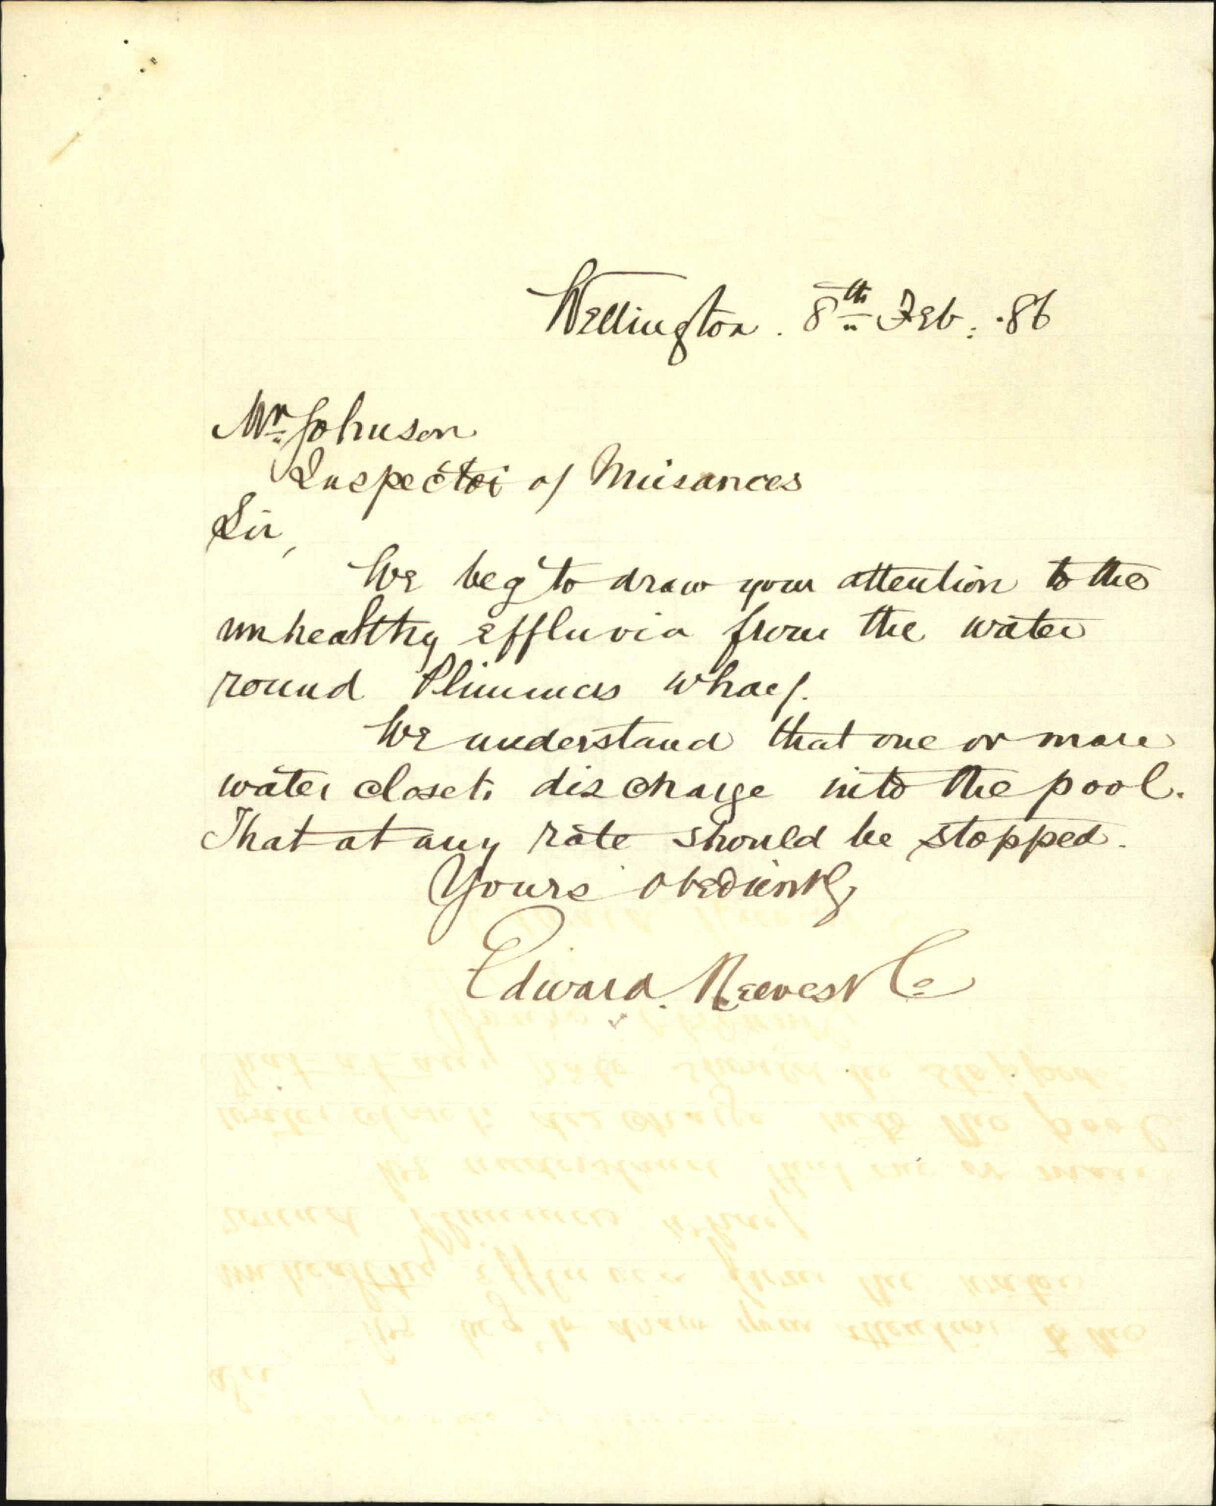 Wellington. 8th Feb. .86
Mr Johnson
Inspector of Nuisances
Sir,
We beg to draw your attention to the
unhealthy effluvia from the water
round Plimmers wharf.
We understand that one or more
water closets discharge into the pool.
That at any rate should be stopped.
Yours obediently
Edward Reeves & Co